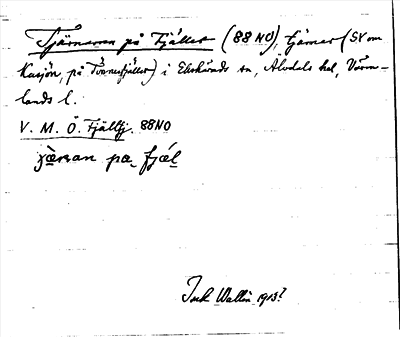 Tjärnarna på Fjället (88 NO), tjärnar (SV om
Kusjön, på Tönnesfjället) i Ekshärads sn, Älvdals hd, Värm-
lands l.
V. M. Ö. Fjälltj. 88NO
pa fjäl
Wallin 1913?